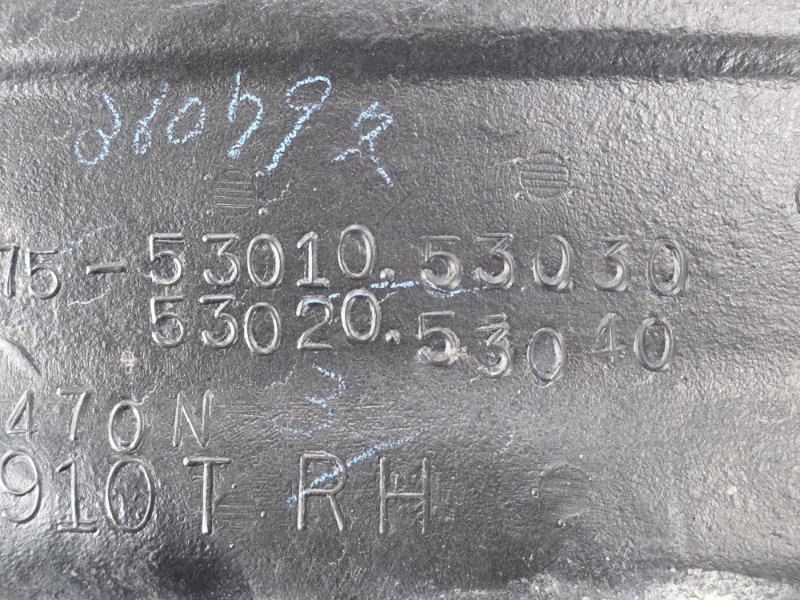 75-53010.53030
53020.53040
470N
910T RH